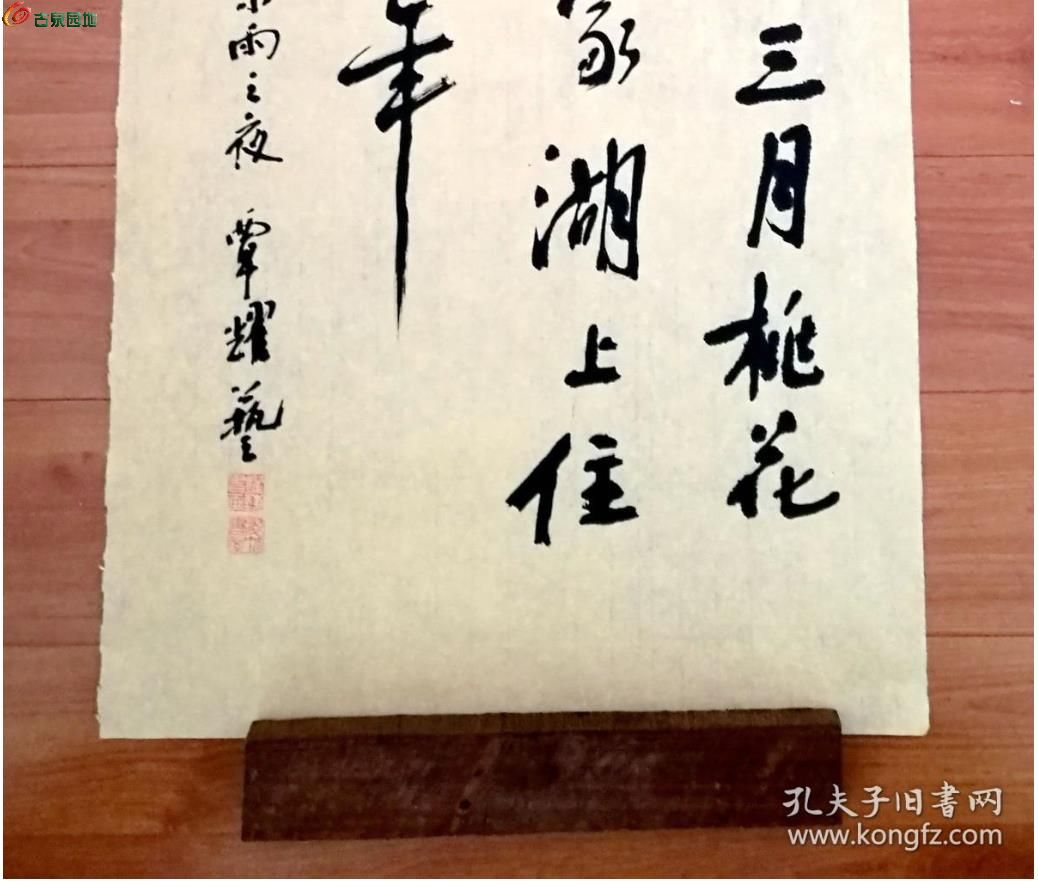 三月桃花
家湖上住
年
雨之夜 覃耀艺
古泉园地
孔夫子旧書网
www.kongfz.com